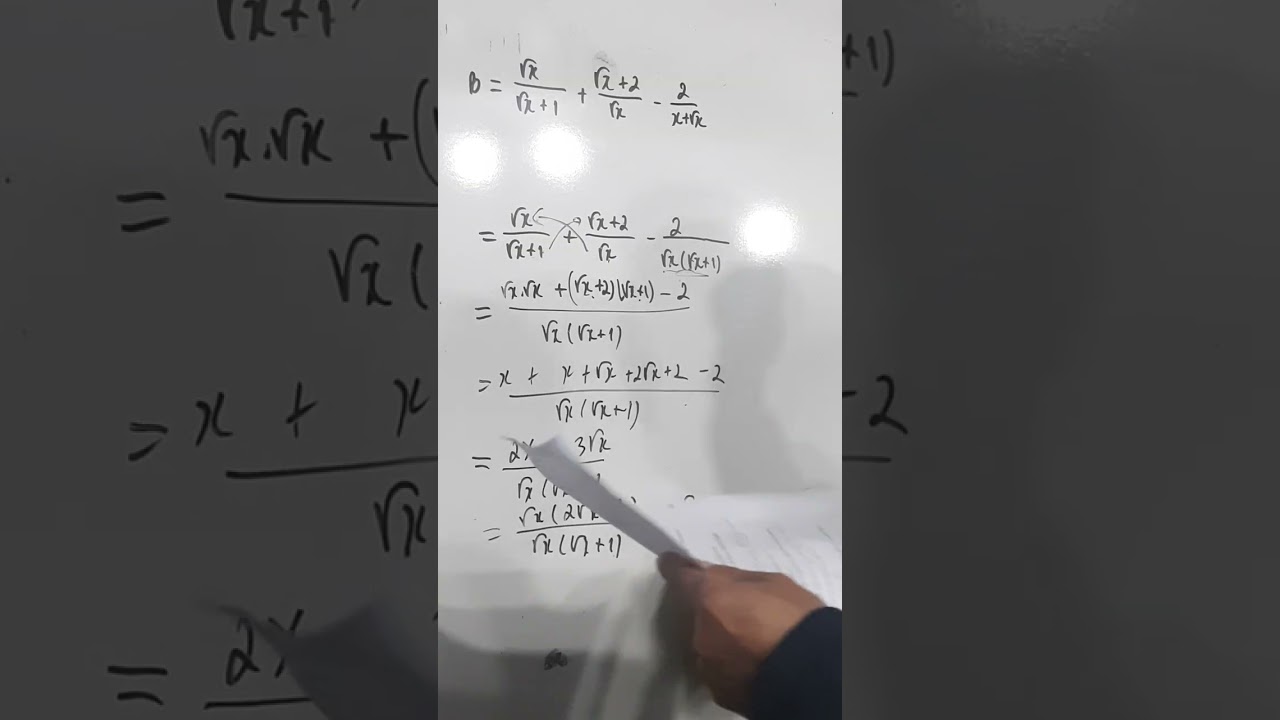 B = √x/(√x+1) + (√x+2)/√x - 2/(x+√x)
= √x/(√x+1) + (√x+2)/√x - 2/(√x(√x+1))
= (√x.√x + (√x+2)(√x+1) - 2)/(√x(√x+1))
= (x + x + √x + 2√x + 2 - 2)/(√x(√x+1))
= 2x 3√x / √x(
= √x(2√x / √x(√x+1)